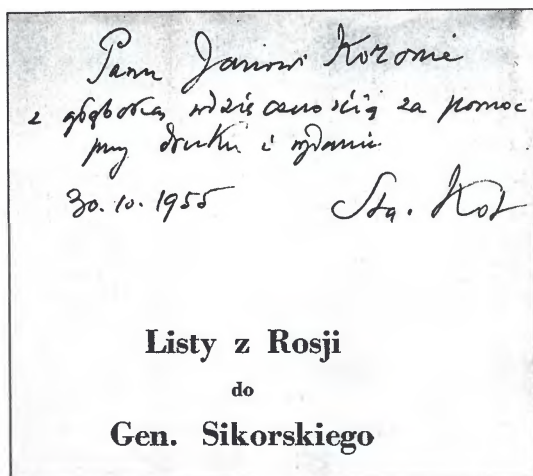 Panu Janowi Kozonie
z głęboką wdzięcznością za pomoc
przy druku i wydaniu
30.10.1955 Sta. Kot
Listy z Rosji
do
Gen. Sikorskiego